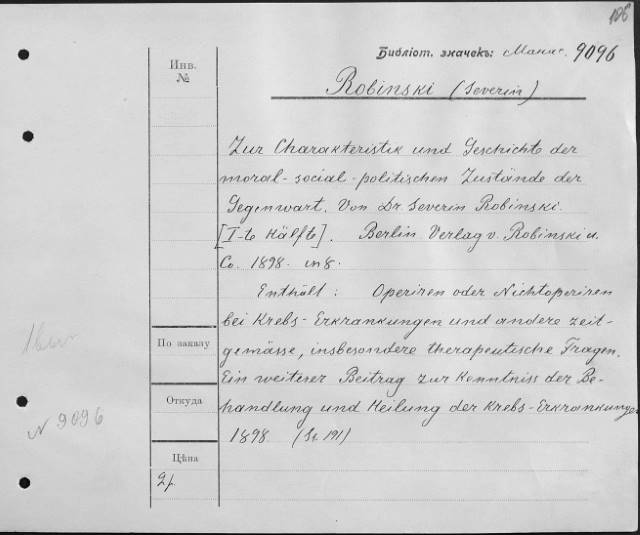 106
Библіот. значекъ: 9096
Инв.
№
Robinski (Severin)
Zur Charakteristik und Geschichte der
moral-social-politischen Zustände der
Gegenwart. Von Dr. Severin Robinski.
[I-te Hälfte]. Berlin. Verlag v. Robinski u.
Co. 1898. in 8.
Enthält: Operiren oder Nichtoperiren
bei Krebs-Erkrankungen und andere zeit-
gemässe, insbesondere therapeutische Fragen.
Ein weiterer Beitrag zur Kenntniss der Be-
handlung und Heilung der Krebs-Erkrankungen
1898. (St. 191)
По заказу
Откуда
N 9096
Цѣна